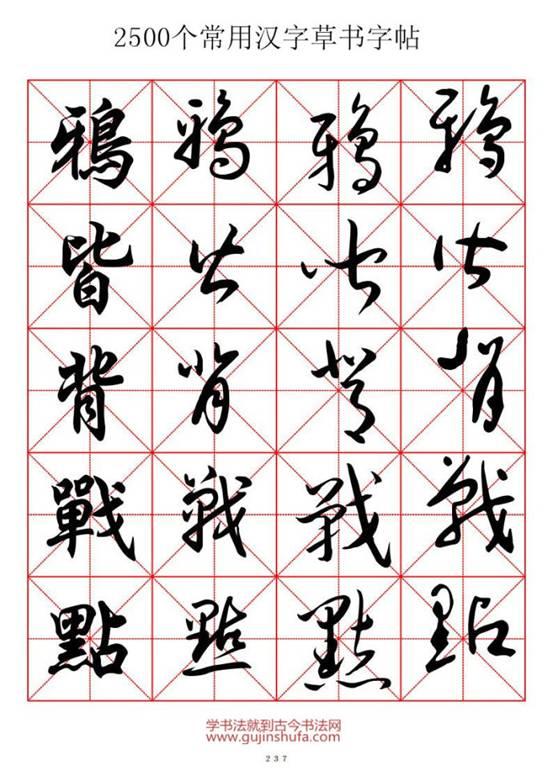 2500个常用汉字草书字帖
鴉鴉鴉鴉
皆皆皆皆
背背背背
戰戰戰戰
點點點點
学书法就到古今书法网
www.gujinshufa.com
237